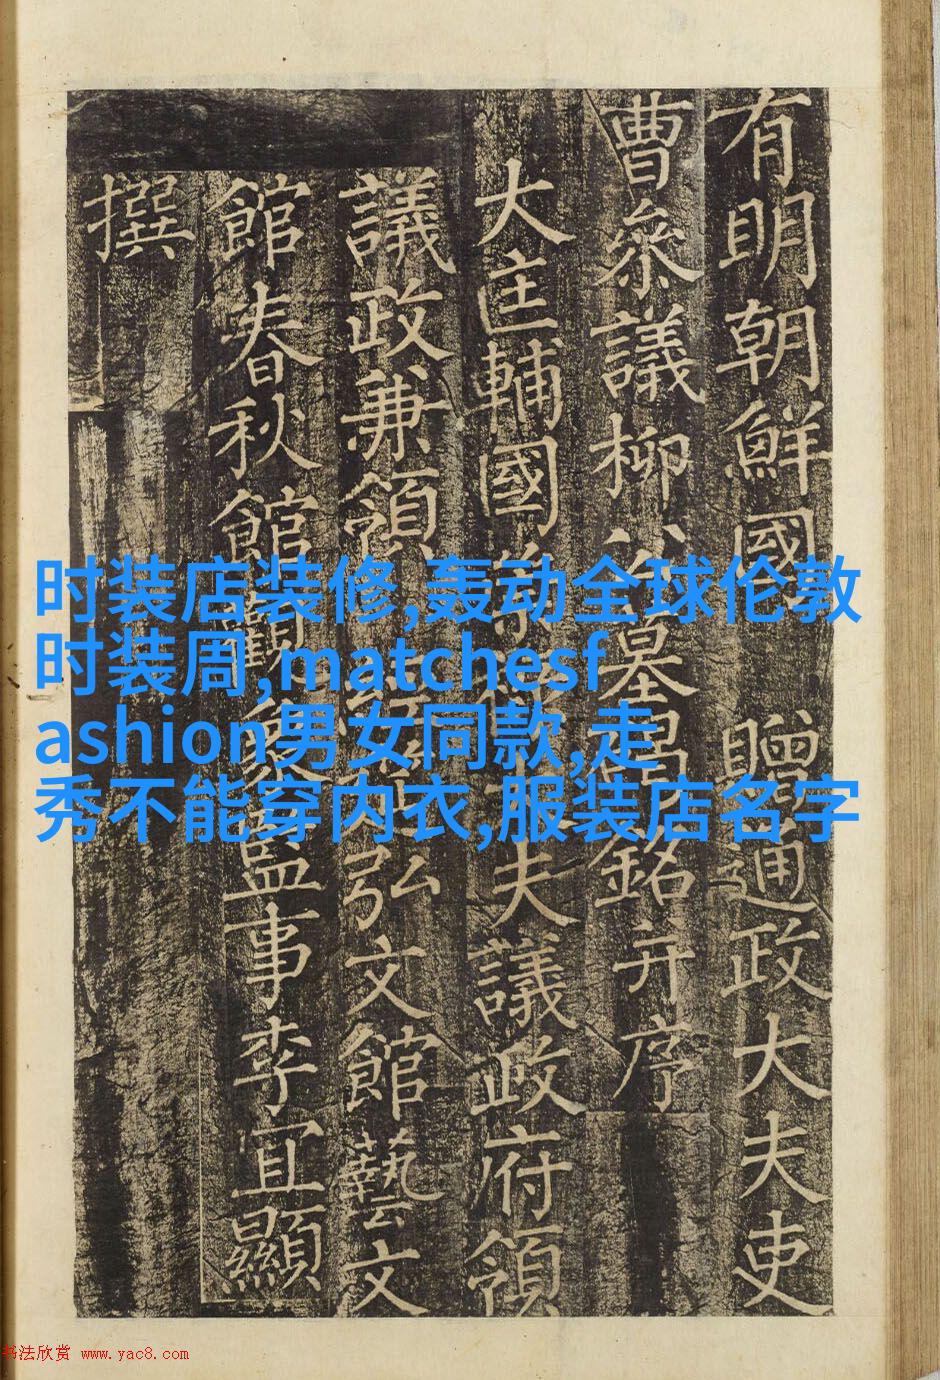 有明朝鮮國 贈通政大夫吏
曹叅議柳公墓碣銘并序
大匡輔國崇祿大夫議政府領
議政兼領經筵弘文館藝文
館春秋館觀象監事李宜顯
撰
时装店装修,轰动全球伦敦
时装周,matchesf
ashion男女同款,走
秀不能穿内衣,服装店名字
书法欣赏 www.yac8.com